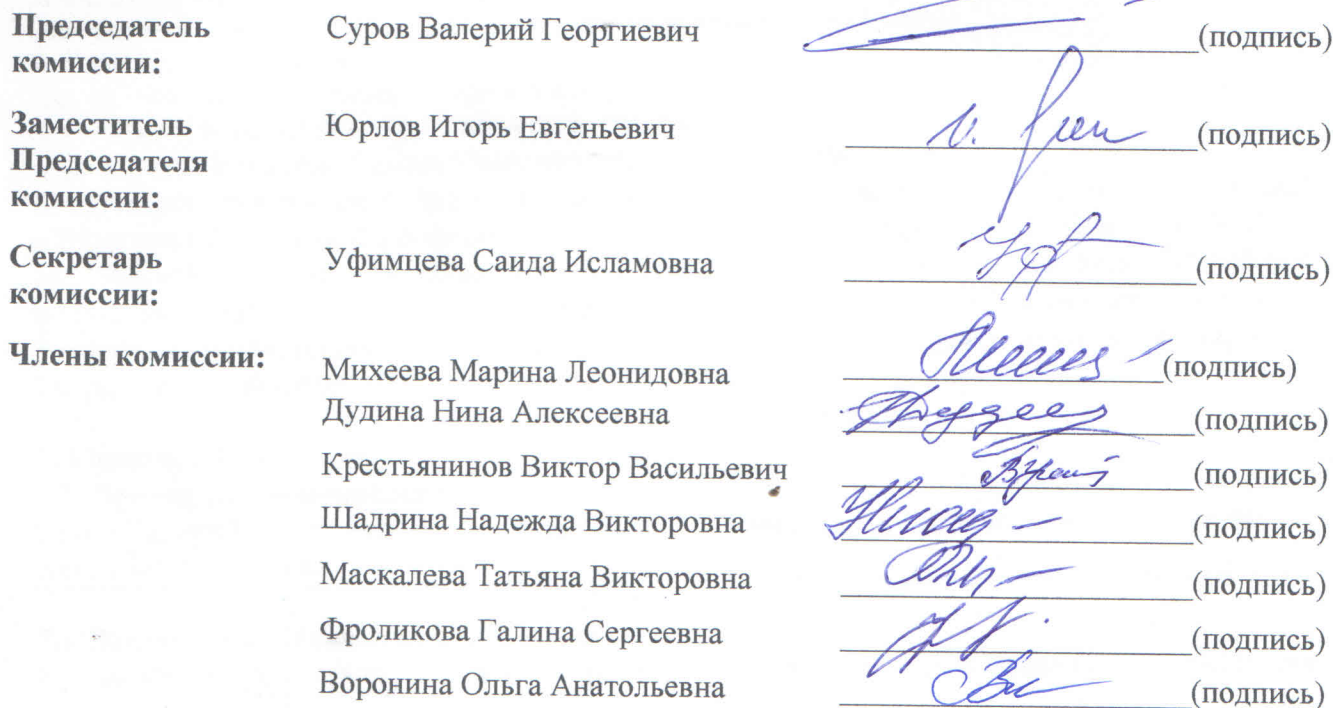 Председатель Суров Валерий Георгиевич (подпись)
комиссии:
Заместитель Юрлов Игорь Евгеньевич (подпись)
Председателя
комиссии:
Секретарь Уфимцева Саида Исламовна (подпись)
комиссии:
Члены комиссии:
Михеева Марина Леонидовна (подпись)
Дудина Нина Алексеевна (подпись)
Крестьянинов Виктор Васильевич (подпись)
Шадрина Надежда Викторовна (подпись)
Маскалева Татьяна Викторовна (подпись)
Фроликова Галина Сергеевна (подпись)
Воронина Ольга Анатольевна (подпись)